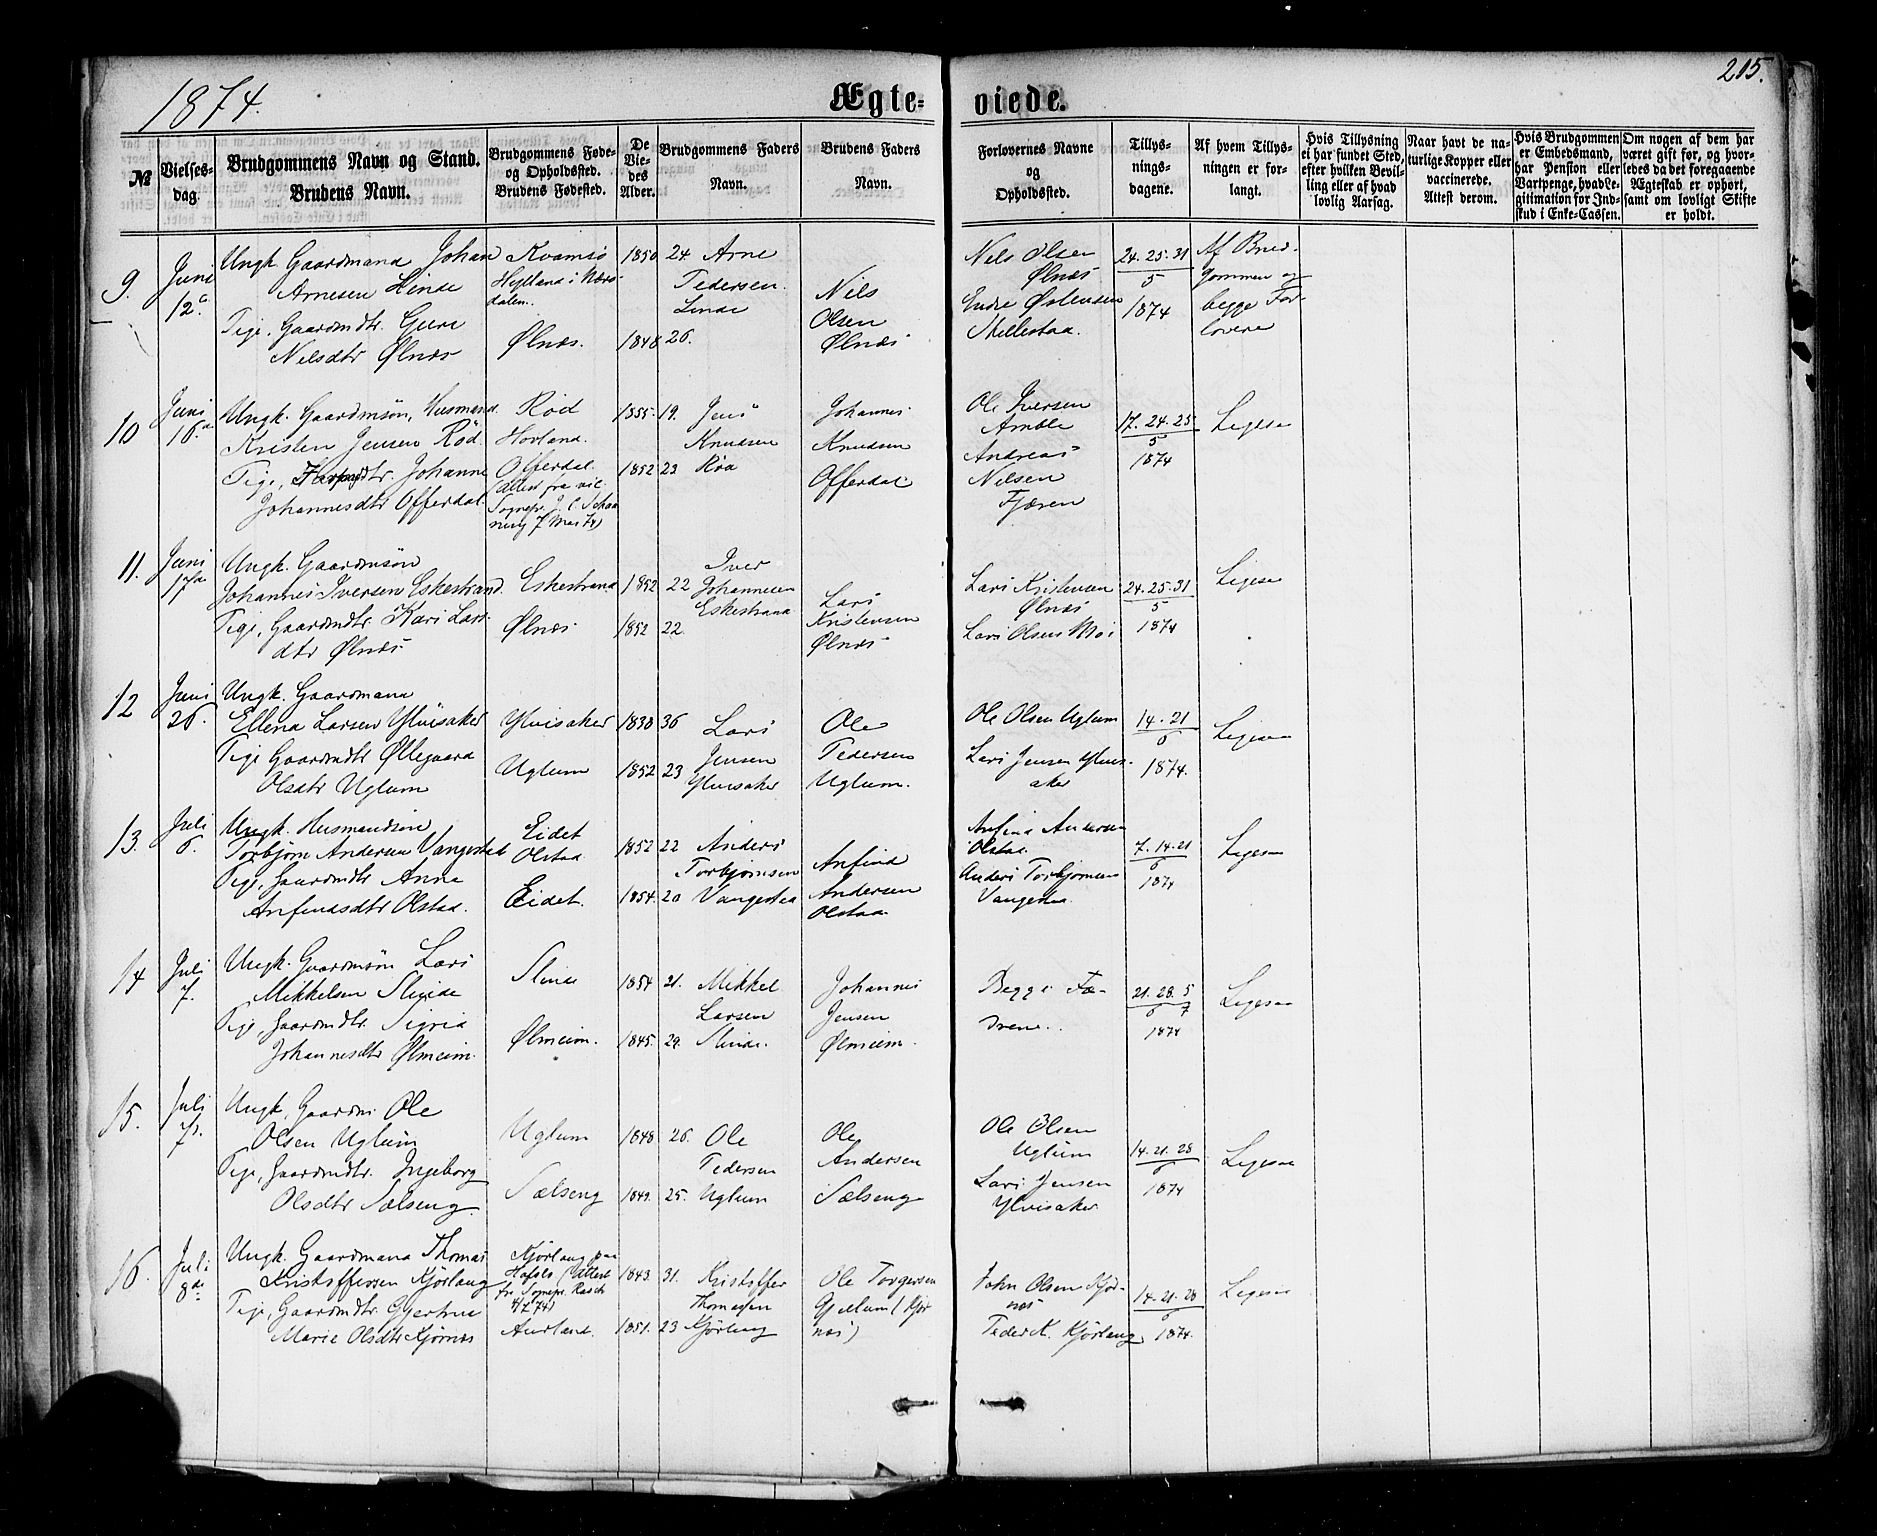 1874.
Ægte-
viede.
215.
№
Vielses-
dag.
Brudgommens Navn og Stand.
Brudens Navn.
Brudgommens Føde-
og Opholdssted.
Brudens Fødested.
De
Vie-
des
Alder.
Brudgommens Faders
Navn.
Brudens Faders
Navn.
Forlovernes Navne
og
Opholdssted.
Tillys-
nings-
dagene.
Af hvem Tillys-
ningen er for-
langt.
Hvis Tillysning
ei har fundet Sted,
efter hvilken Bevil-
ling eller af hvad
lovlig Aarsag.
Naar havt de na-
turlige Kopper eller
vaccinerede.
Attest derom.
Hvis Brudgommen
er Embedsmand,
har Pension eller
Vartpenge, hvad Le-
gitimation for Ind-
skud i Enke-Cassen.
Om nogen af dem har
været gift før, og hvor-
ledes da det foregaaende
Ægteskab er ophørt,
samt om lovligt Skifte
er holdt.
9.
Juni
12
Ungk. Gaardmand Johan
Arnesen Hinde
Pige, Gaardmdtr. Guri
Nilsdtr Ølnæs
Kvamsø
Ølnæs.
1850 24
1848 26.
Arne
Pedersen
Nils
Olsen
Ølnæs
Nils Olsen
Ølnæs
Endre Østensen
Skillestad.
24. 25. 31
5
1874
Af Brud-
gommen og
begge For-
lovere
10
Juni
16
Ungk. Gaardmsøn, Husmand
Kristen Jensen Röd
Pige, Johanne
Johannesdtr Offerdal
Röd
Hovland.
Offerdal.
1855. 19.
1852 23
Jens
Knudsen
Röd
Johannes
Knudsen
Offerdal
Ole Iversen
Amble
Andreas
Nilsen
Fjæren
17. 24. 25
5
1874
Ligesaa
11.
Juni
17
Ungk. Gaardmsøn
Johannes Iversen Eskestrand
Pige, Gaardmdtr. Kari Lars-
dtr Ølnæs
Eskestrand
Ølnæs
1852 22
1852 22
Iver
Johannesen
Eskestrand
Lars
Kristensen
Ølnæs
Lars Kristensen
Ølnæs
Lars Olsen Moe
24. 25. 31
5
1874
Ligesaa
12
Juni
26.
Ungk. Gaardmand
Ellend Larsen Ylvisaker
Pige Gaardmdtr Øllegaard
Olsdtr Uglum
Ylvisaker
Uglum
1838 36
1852 23
Lars
Jensen
Ylvisaker
Ole
Pedersen
Uglum.
Ole Olsen Uglum
Lars Jensen Ylvis-
aker
14. 21
6
1874.
Ligesaa
13.
Juli
6.
Ungk. Husmandsön
Torbjörn Andersen Vangestad
Pige, Gaardmdtr Anna
Anfindsdtr Olstad.
Eidet
Olstad
Eidet.
1852 22
1854. 20
Anders
Torbjörnsen
Vangestad
Anfind
Andersen
Olstad
Anfind Andersen
Olstad
Anders Torbjörnsen
Vangestad.
7. 14. 21
6
1874
Ligesaa
14
Juli
7.
Ungk. Gaardmsøn Lars
Mikkelsen Slinde
Pige, Gaardmdtr. Sigrid
Johannesdtr Ølmeim.
Slinde
Ølmeim.
1854 21.
1845. 29.
Mikkel
Larsen
Slinde.
Johannes
Jensen
Ølmeim.
Begge Fæ-
drene.
21. 28. 5
6 7
1874
Ligesaa
15.
Juli
7.
Ungk. Gaardm. Ole
Olsen Uglum
Pige, Gaardmdtr. Ingeborg
Olsdtr Sælseng.
Uglum
Sælseng
1848 26.
1849. 25.
Ole
Pedersen
Uglum
Ole
Andersen
Sælseng
Ole Olsen
Uglum
Lars Jensen
Ylvisaker
14. 21. 28
6
1874
Ligesaa
16.
Juli
8
Ungk. Gaardmand Thomas
Kristoffersen Kjörlaug
Pige, Gaardmdtr. Gjertrud
Marie Olsdtr Kjørnæs
Kjörlaug paa
Hafslo (Attest
fr. Sognepr. Rasch
Aurland.
1843. 31.
1851. 23
Kristoffer
Thomassen
Kjörlaug
Ole Torgersen
Gjellum (Kjør-
næs)
John Olsen Kjør-
næs
Peder K. Kjörlaug
14. 21. 28
6
1874.
Ligesaa